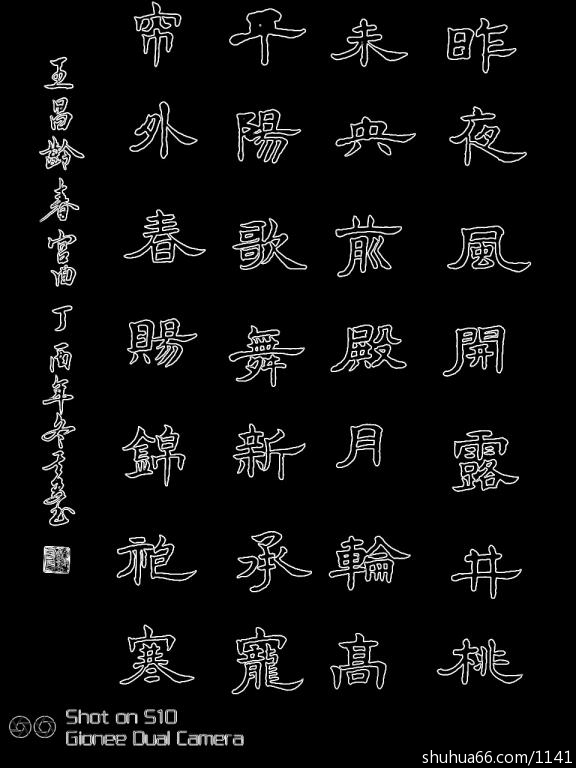 昨夜風開露井桃
未央前殿月輪高
平陽歌舞新承寵
帘外春賜錦袍寒
王昌齡春宫曲 丁酉年冬
Shot on S10
Gionee Dual Camera
shuhua66.com/1141